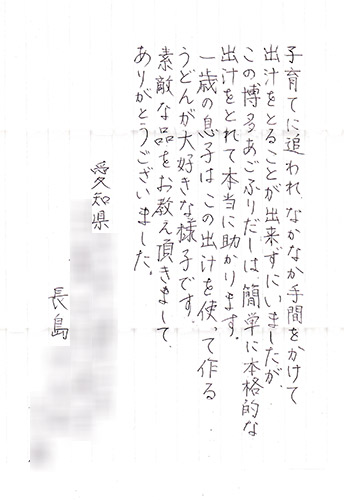 子育てに追われ、なかなか手間をかけて
出汁をとることが出来ずにいましたが、
この博多あごふりだしは、簡単に本格的な
出汁をとれて本当に助かります。
一歳の息子は、この出汁を使って作る
うどんが大好きな様子です。
素敵な品をお教え頂きまして、
ありがとうございました。
愛知県
長島